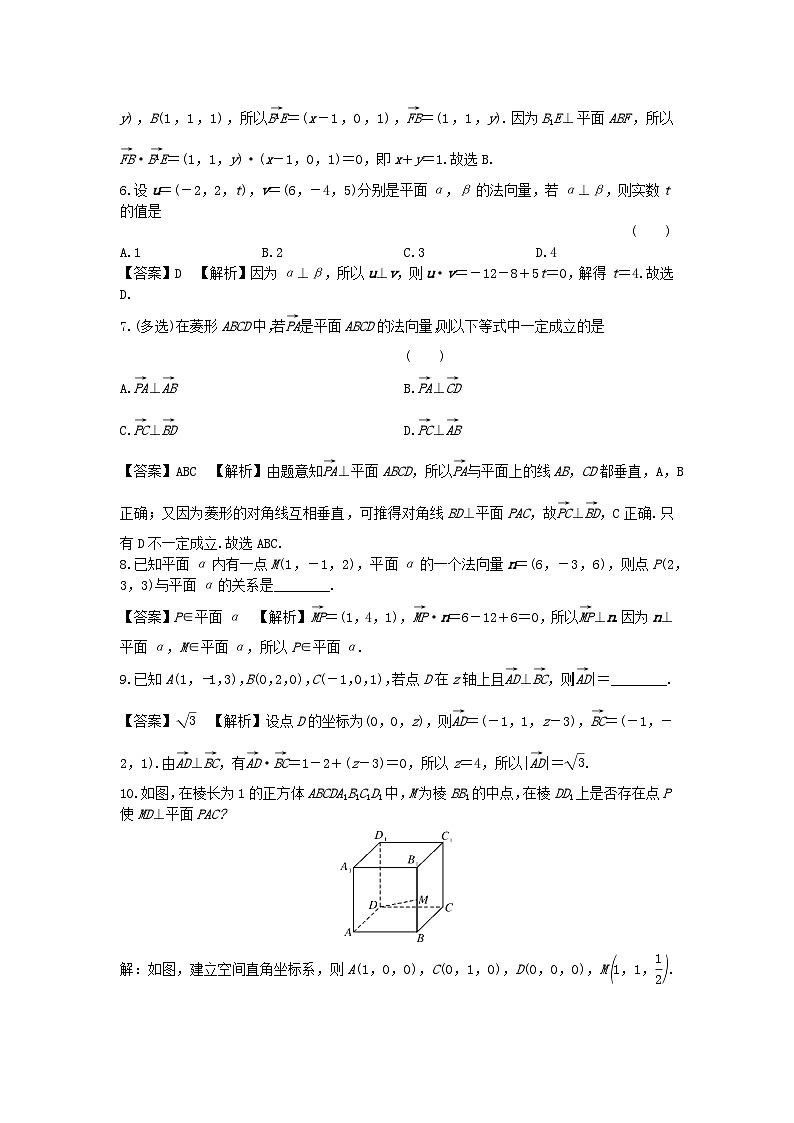 y),B(1,1,1),所以B₁E→=(x-1,0,1),FB→=(1,1,y).因为B₁E⊥平面ABF,所以
FB→·B₁E→=(1,1,y)·(x-1,0,1)=0,即x+y=1.故选B.
6.设u=(-2,2,t),v=(6,-4,5)分别是平面α,β的法向量,若α⊥β,则实数t
的值是
(　　)
A.1　B.2　C.3　D.4
【答案】D 【解析】因为α⊥β,所以u⊥v,则u·v=-12-8+5t=0,解得t=4.故选
D.
7.(多选)在菱形ABCD中,若PA→是平面ABCD的法向量,则以下等式中一定成立的是
(　　)
A.PA→⊥AB→　B.PA→⊥CD→
C.PC→⊥BD→　D.PC→⊥AB→
【答案】ABC 【解析】由题意知PA→⊥平面ABCD,所以PA→与平面上的线AB,CD都垂直,A,B
正确;又因为菱形的对角线互相垂直,可推得对角线BD⊥平面PAC,故PC→⊥BD→,C正确.只
有D不一定成立.故选ABC.
8.已知平面α内有一点M(1,-1,2),平面α的一个法向量n=(6,-3,6),则点P(2,
3,3)与平面α的关系是________.
【答案】P∈平面α 【解析】MP→=(1,4,1),MP→·n=6-12+6=0,所以MP→⊥n.因为n⊥
平面α,M∈平面α,所以P∈平面α.
9.已知A(1,-1,3),B(0,2,0),C(-1,0,1),若点D在z轴上且AD→⊥BC→,则|AD→|=________.
【答案】√3 【解析】设点D的坐标为(0,0,z),则AD→=(-1,1,z-3),BC→=(-1,-
2,1).由AD→⊥BC→,有AD→·BC→=1-2+(z-3)=0,所以z=4,所以|AD→|=√3.
10.如图,在棱长为1的正方体ABCDA₁B₁C₁D₁中,M为棱BB₁的中点,在棱DD₁上是否存在点P
使MD⊥平面PAC?
D₁　C₁
A₁　B₁
D　M　C
A　B
解:如图,建立空间直角坐标系,则A(1,0,0),C(0,1,0),D(0,0,0),M(1,1,1/2).